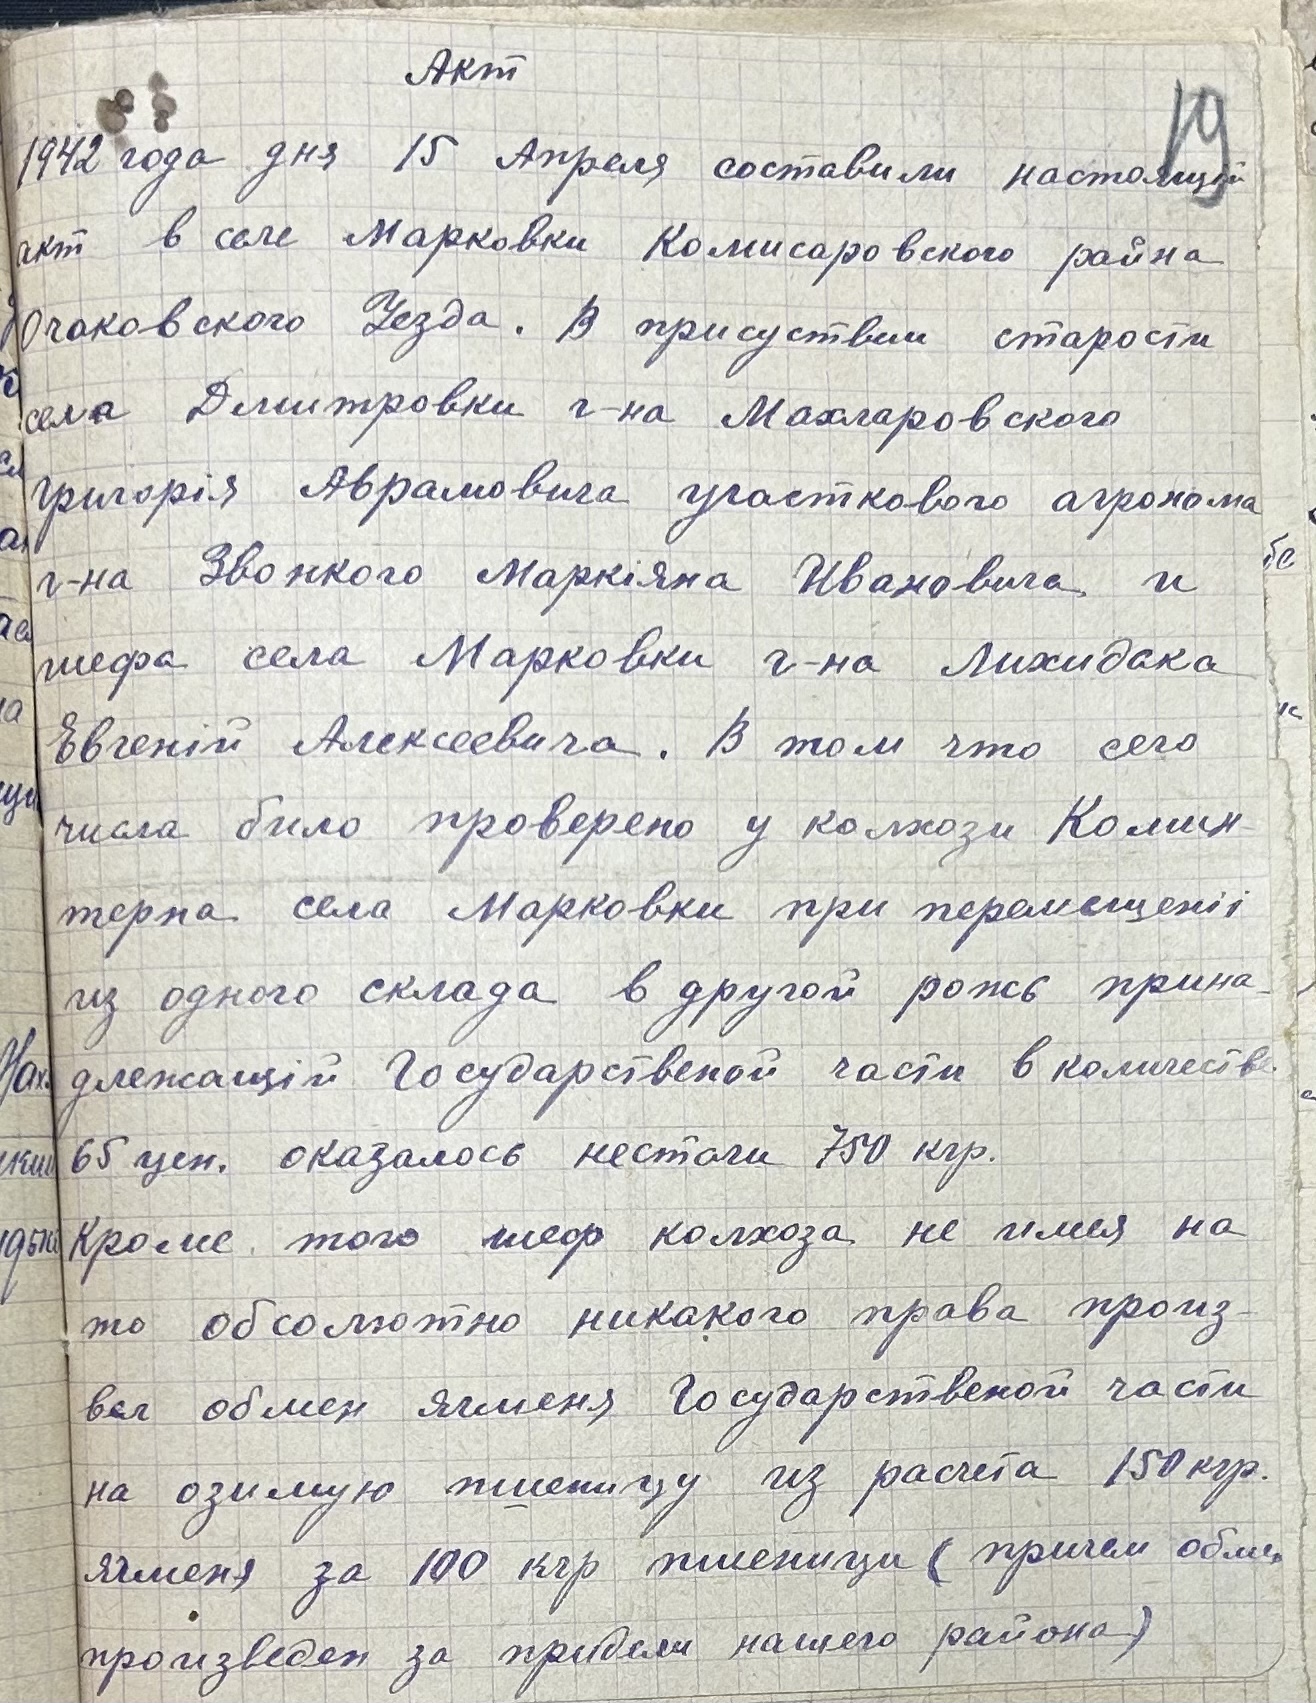 Акт
19
1942 года дня 15 Апреля составили настоящій
акт в селе Марковки Комисаровского района
Очаковского Уезда. В присуствии старости
села Дмитровки г-на Махларовского
Григорія Аврамовича участкового агронома
г-на Звонкого Маркіяна Ивановича и
шефа села Марковки г-на Лихидака
Евгеній Алексеевича. В том что сего
числа било проверено у колхози Комин-
терна села Марковки при перемещеніі
из одного склада в другой рожь прина-
длежащій Государственой части в количестве
65 цен. оказалось нестачи 750 кгр.
Кроме того шеф колхоза не имея на
то обсолютно никакого права произ-
вел обмен ячменя Государственой части
на озимую пшеницу из расчета 150 кгр.
ячменя за 100 кгр пшеници (причем обмен
произведен за придели нашего района)